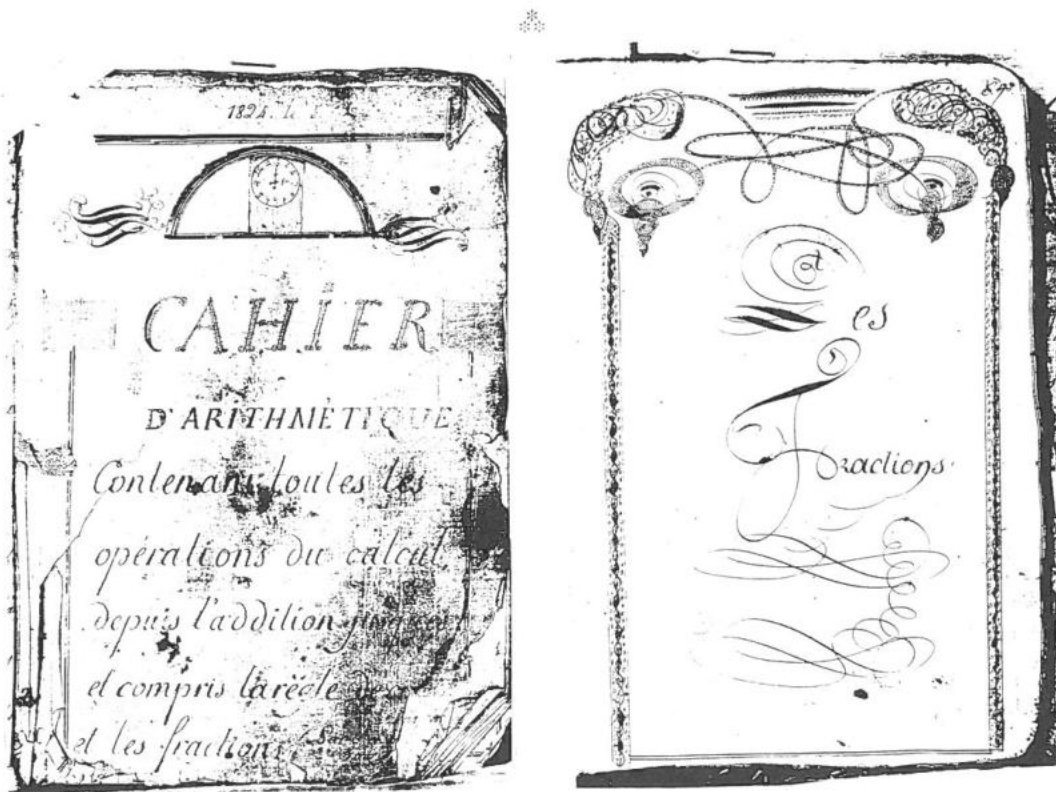 1824. le
CAHIER
D'ARITHMÉTIQUE
Contenant toutes les
opérations du calcul
depuis l'addition jusques
et compris la règle de
et les fractions
des
Fractions.